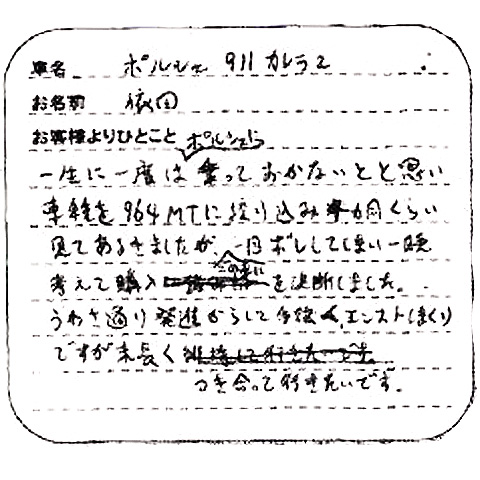 車名 ポルシェ 911 カレラ2
お名前 依田
お客様よりひとこと ポルシェに
一生に一度は乗っておかないとと思い
車種を964MTに絞り込み 何台くらい
見てあるきましたが、一目ボレしてしまい一晩
考えて購入を決断しました。
うわさ通り発進からして手強く、エンストばかり
ですが末長く
つき合って行きたいです。